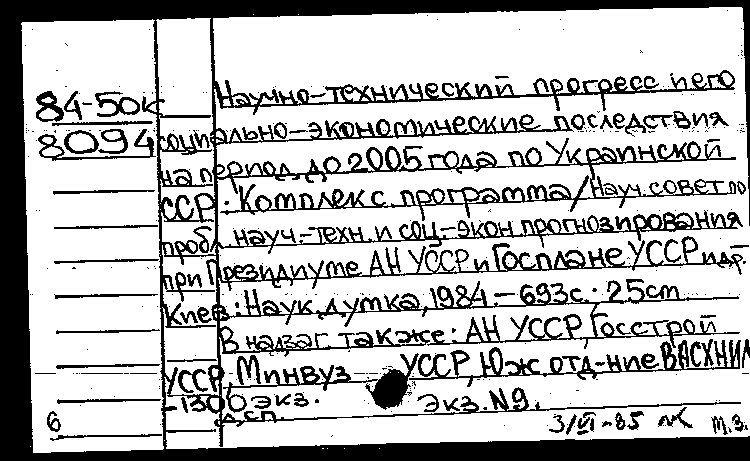 84-50к
8094
Научно-технический прогресс и его
социально-экономические последствия
на период до 2005 года по Украинской
ССР: Комплекс. программа/Науч. совет по
пробл. науч.-техн. и соц.-экон прогнозирования
при Президиуме АН УССР и Госплане УССР и др.
Киев: Наук. думка, 1984.-693с.; 25cm
В надзаг. также: АН УССР, Госстрой
УССР, Минвуз УССР, Юж. отд-ние ВАСХНИЛ
-1300 экз. Экз. N9.
д.сп.
6
3/VI-85
т.з.